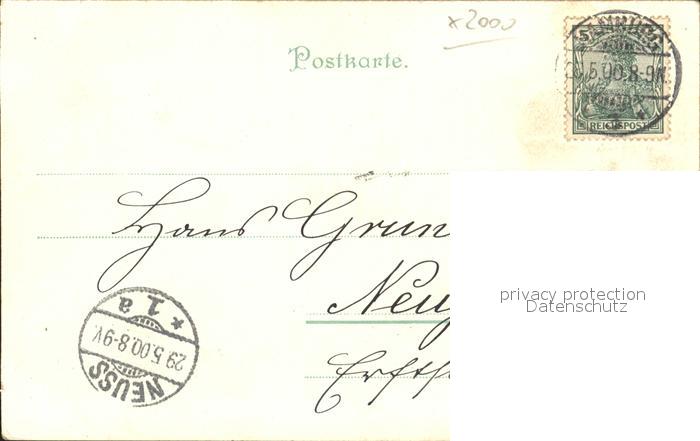 x2000
Postkarte.
5
5.00.8-9N.
REICHSPOST
Hans Grun
Neu
NEUSS
29.5.00.8-9V.
* 1a
privacy protection
Datenschutz